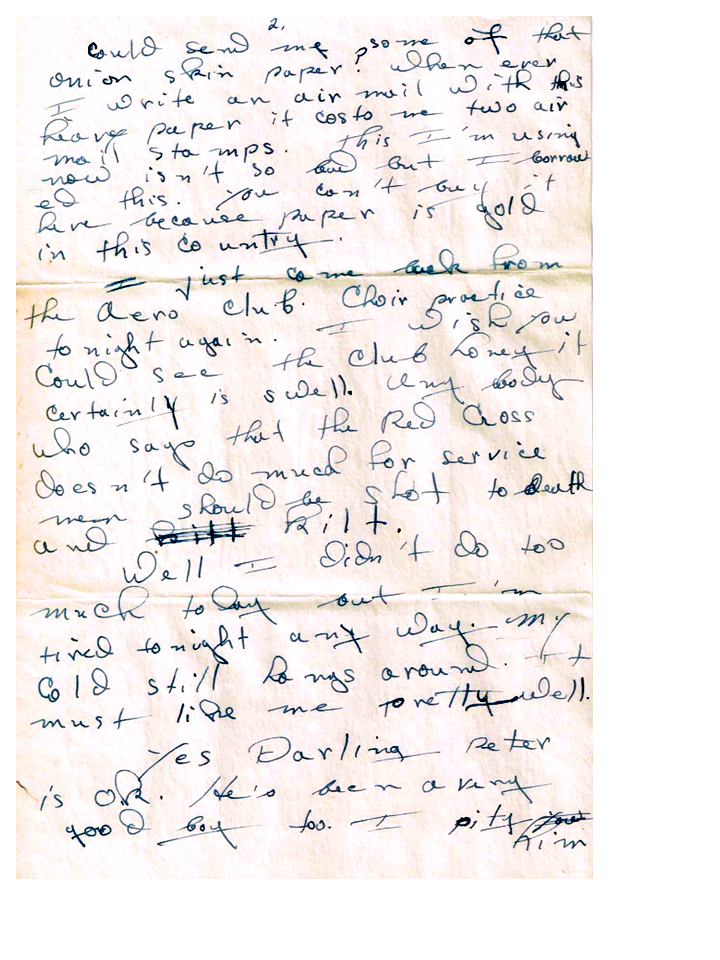 2.
Could send me some of that
onion skin paper? When ever
I write an air mail with this
heavy paper it costs me two air
mail stamps. This I'm using
now isn't so bad but I borrow
ed this. You can't buy it
here because paper is gold
in this country.
I just come back from
the Aero Club. Choir practice
tonight again. I wish you
Could see the Club honey it
certainly is swell. Any body
who says that the Red Cross
doesn't do much for service
men should be shot to death
and Kilt.
Well I didn't do too
much today but I'm
tired tonight any way. My
Cold still hangs around. It
must like me pretty well.
Yes Darling Peter
is OK. He's been a very
good boy too. I pity
him